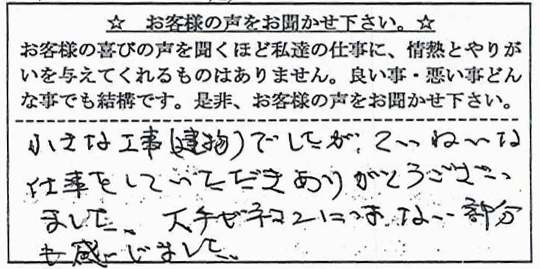 ☆ お客様の声をお聞かせ下さい。☆
お客様の喜びの声を聞くほど私達の仕事に、情熱とやりが
いを与えてくれるものはありません。良い事・悪い事どん
な事でも結構です。是非、お客様の声をお聞かせ下さい。
小さな工事(建物)でしたが、ていねいな
仕事をしていただきありがとうござい
ました。大手ゼネコンにはない部分
も感じました。